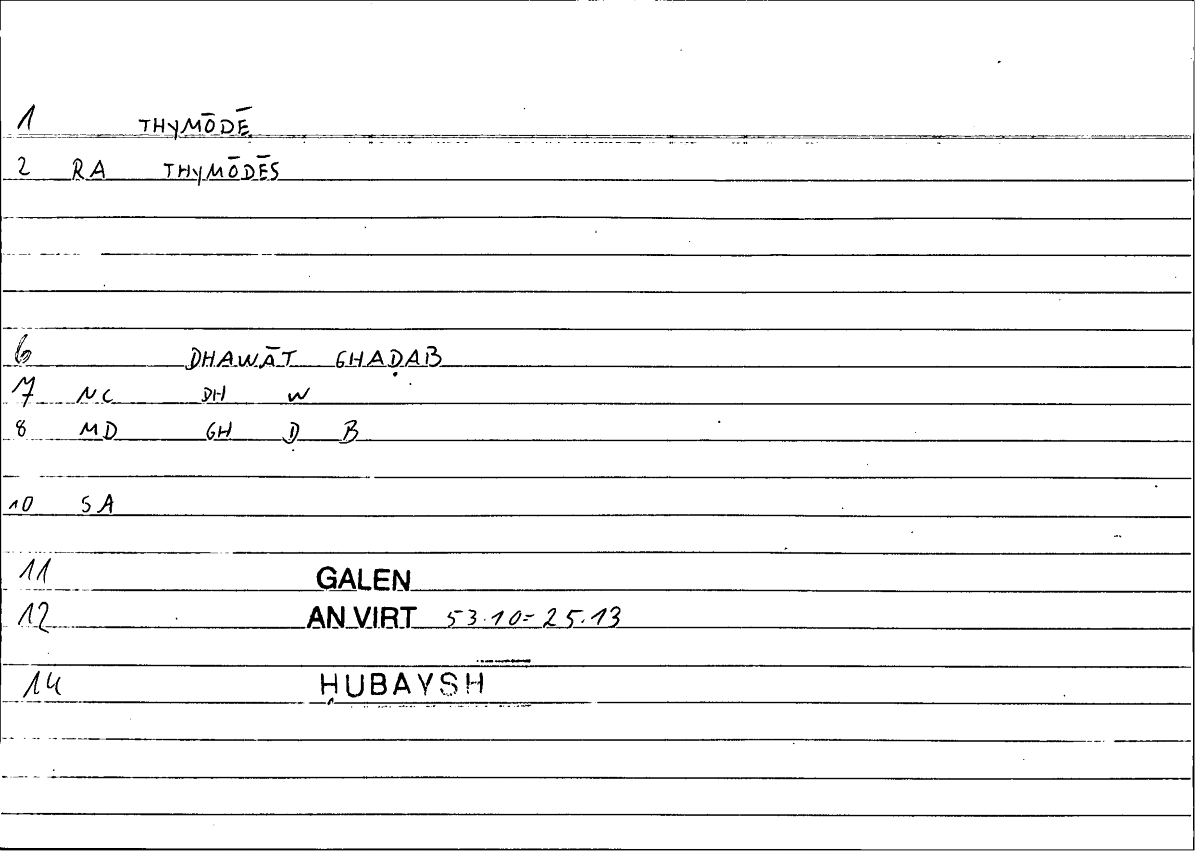 1 THYMŌDĒ
2 RA THYMŌDĒS
6 DHAWĀT GHAḌAB
7 NC DH W
8 MD GH Ḍ B
10 SA
11 GALEN
12 AN VIRT 53.10=25.13
14 ḤUBAYSH